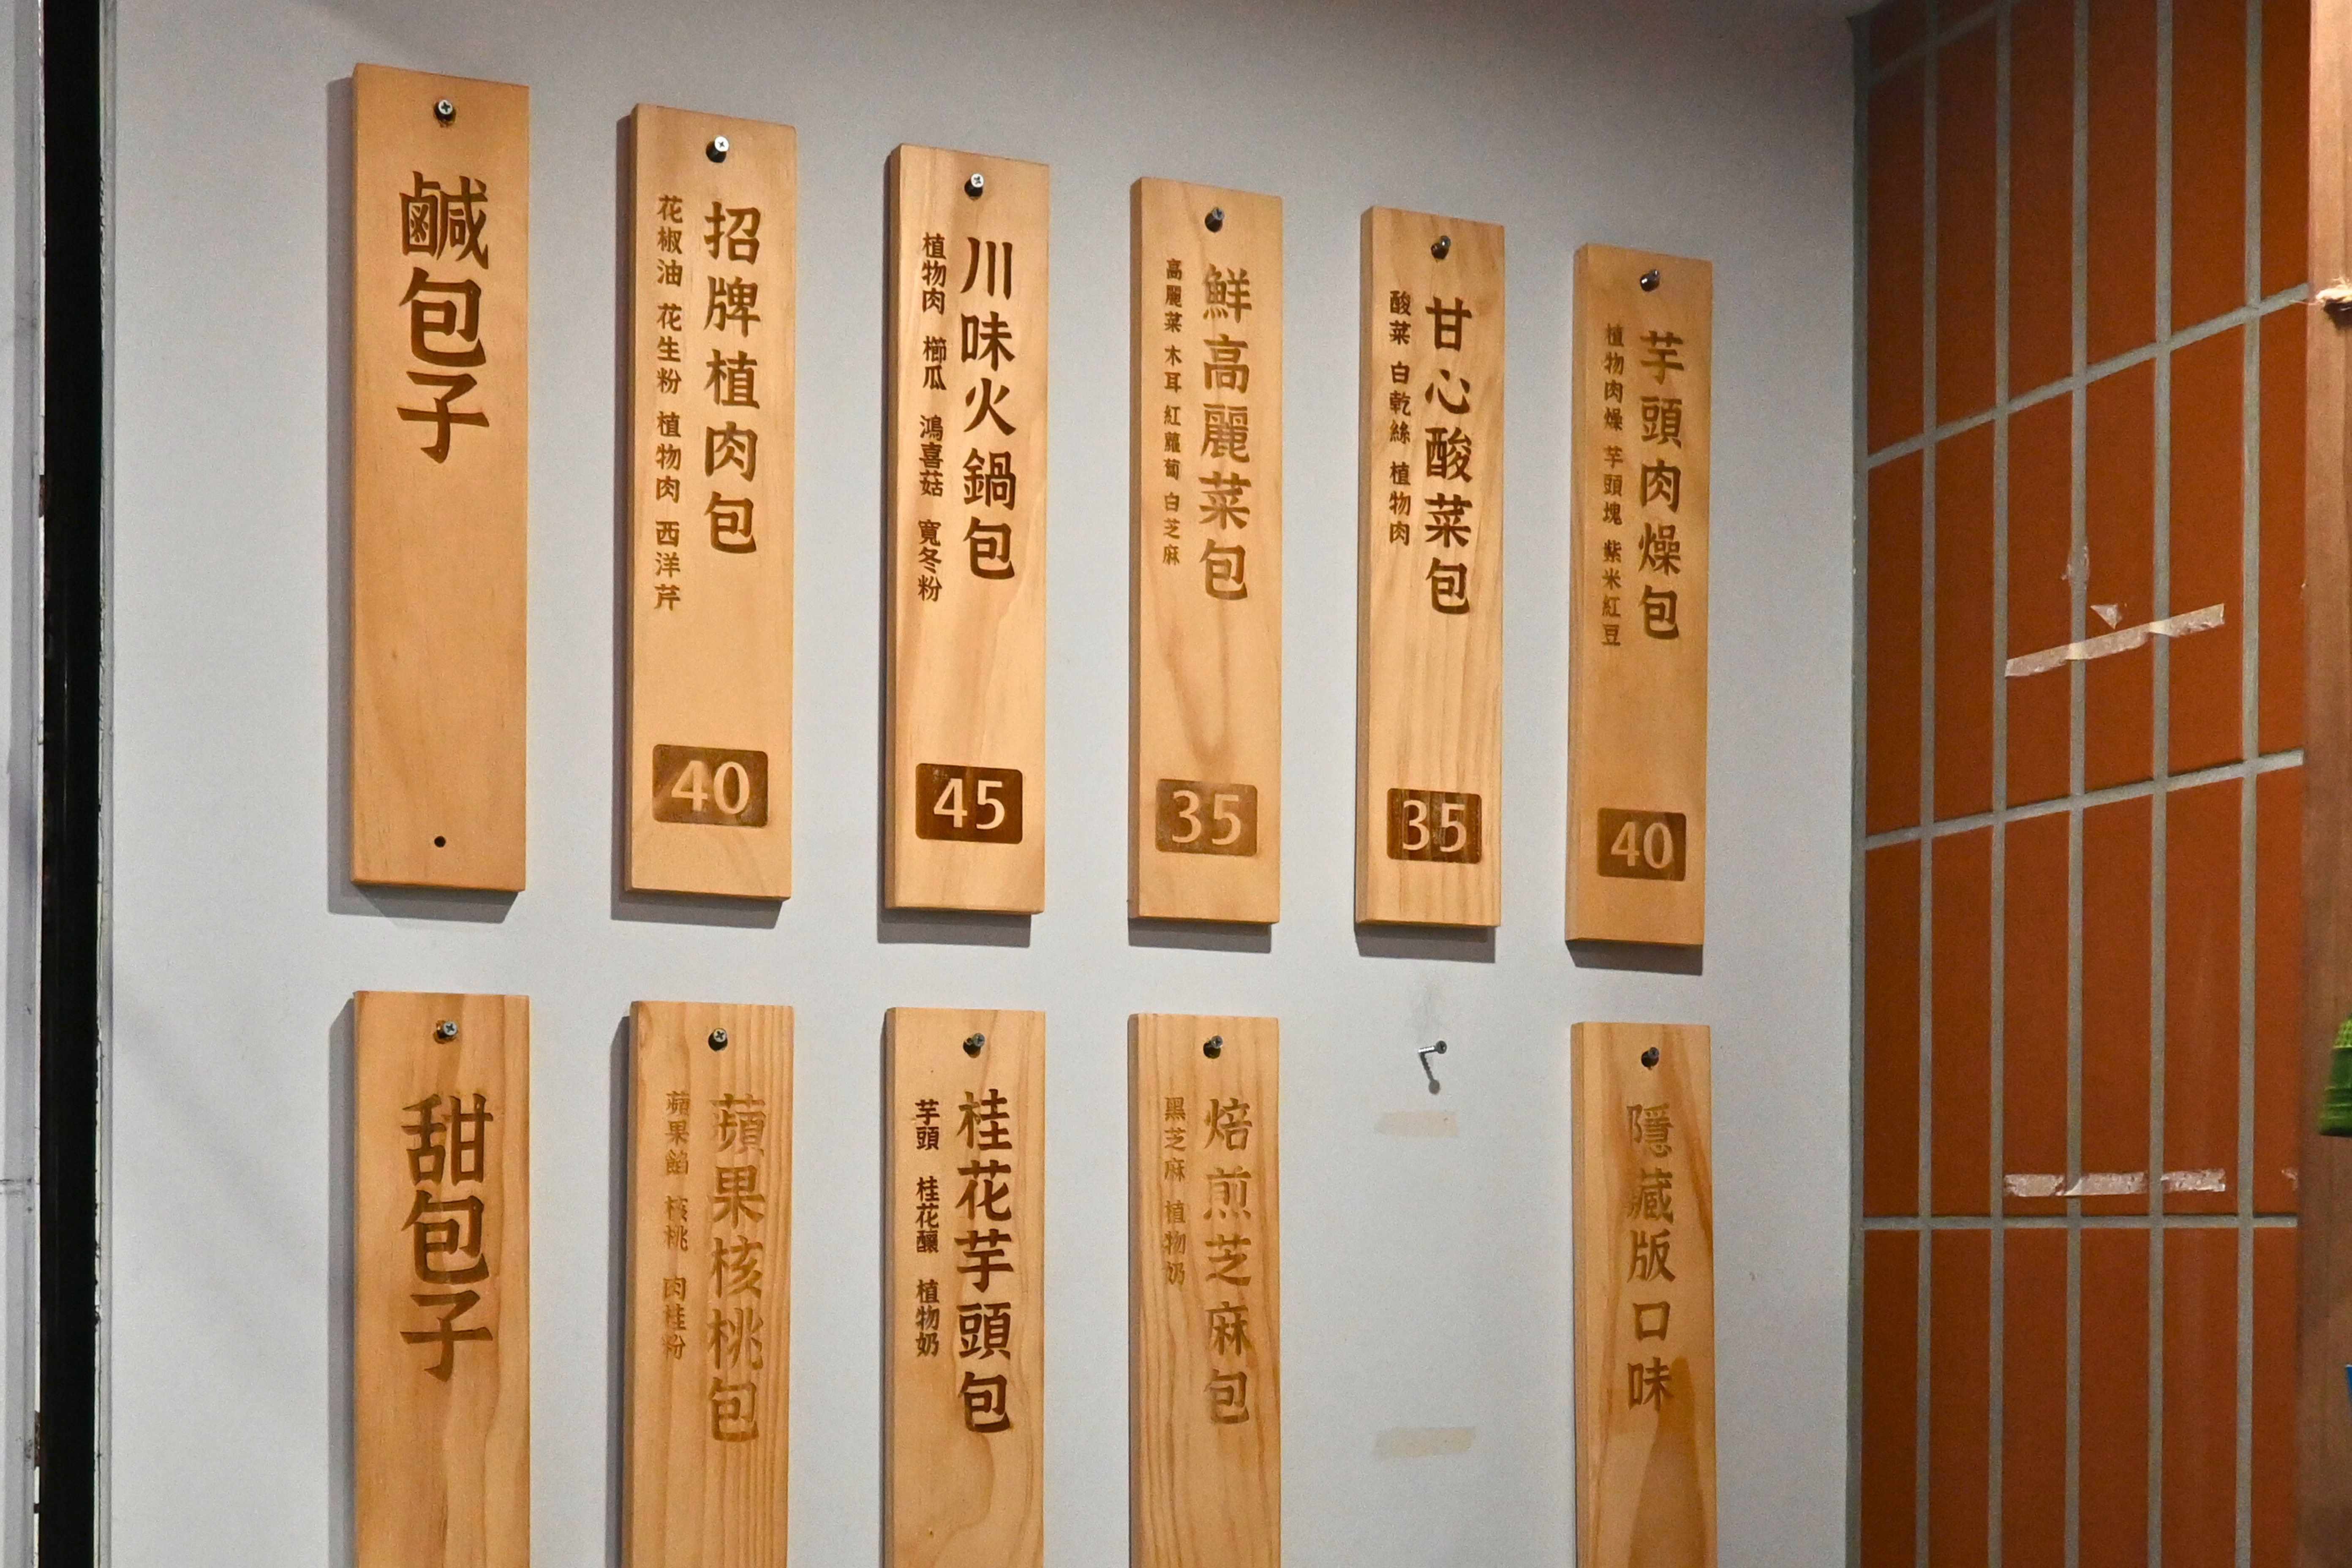 鹹包子
招牌植肉包
花椒油 花生粉 植物肉 西洋芹
40
川味火鍋包
植物肉 櫛瓜 鴻喜菇 寬冬粉
45
鮮高麗菜包
高麗菜 木耳 紅蘿蔔 白芝麻
35
甘心酸菜包
酸菜 白乾絲 植物肉
35
芋頭肉燥包
植物肉燥 芋頭塊 紫米紅豆
40
甜包子
蘋果核桃包
蘋果餡 核桃 肉桂粉
桂花芋頭包
芋頭 桂花釀 植物奶
焙煎芝麻包
黑芝麻 植物奶
隱藏版口味